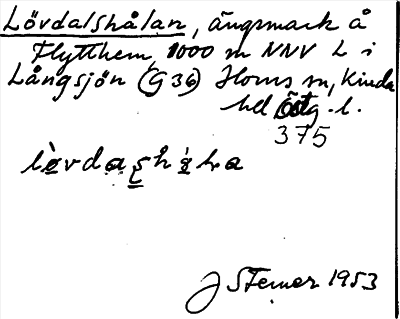 Lövdalshålan, ängsmark å
Flytthem, 1000 m NNV L i
Långsjön (G 36) Horns sn, Kinda
hd Östg. l.
375
J Sterner 1953